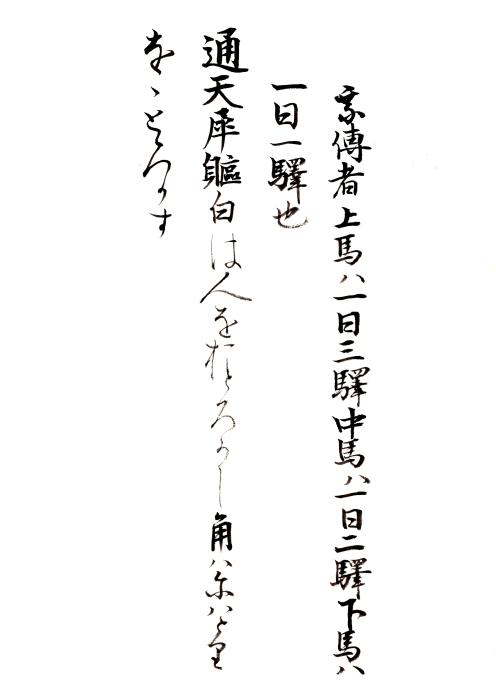 乗傳者上馬ハ一日三驛中馬ハ一日二驛下馬ハ
一日一驛也
通天犀軀白は人をおとろかし角ハにハとり
をゝとろかす